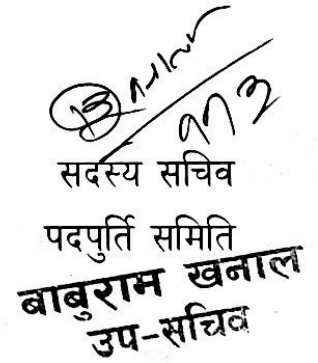 सदस्य सचिव
पदपुर्ति समिति
बाबुराम खनाल
उप-सचिव